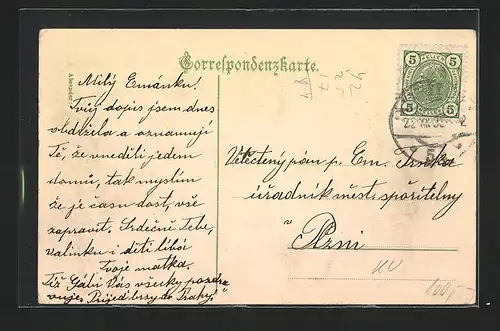 Correspondenzkarte.
Milý Emánku!
Tvůj dopis jsem dnes
obdržela a oznamuji
Ti, že v neděli jedem
domů, tak myslím
že je času dost, vše
zapravit. Srdečně Tebe,
valinku i děti líbá
Tvoje matka.
Též Gábi Vás všecky pozdra-
vuje. Přijeď brzy do Prahy!
5 5
5 5
Velectěný pán p. Em. Trnka
úřadník měst. spořitelny
v
Plzni